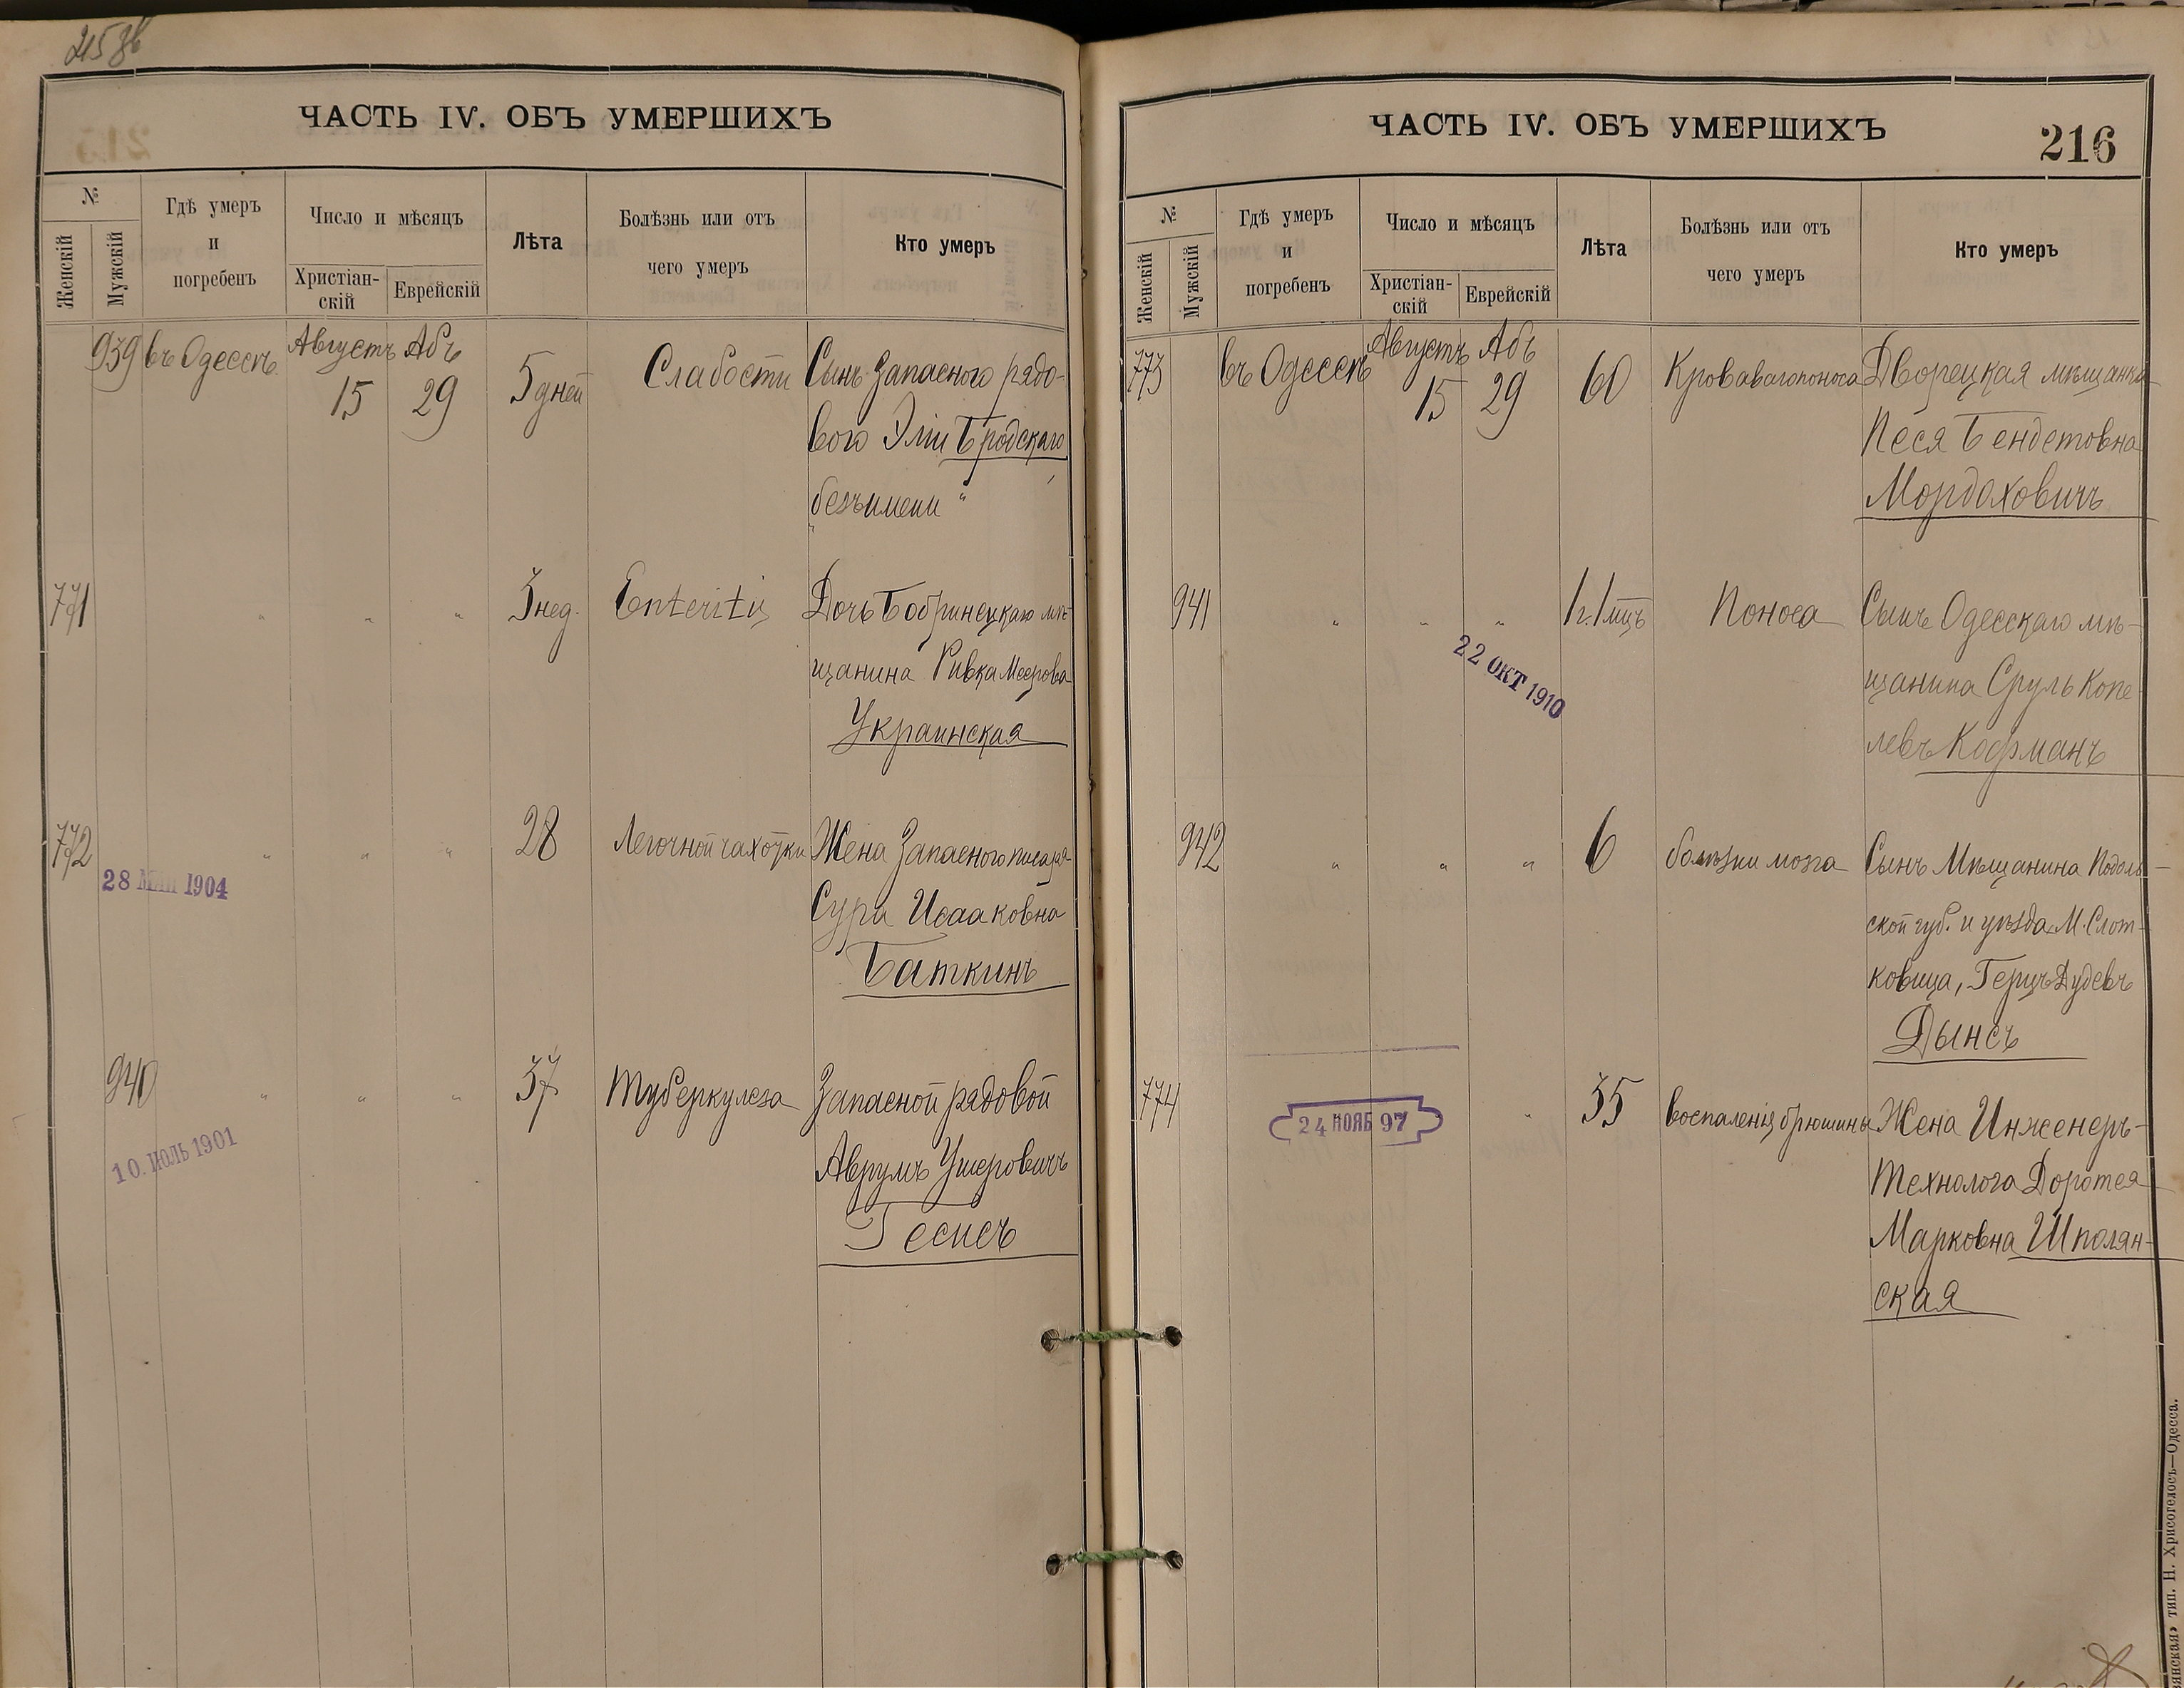 ЧАСТЬ IV. ОБЪ УМЕРШИХЪ
№
Женскій
Мужскій
Гдѣ умеръ
и
погребенъ
Число и мѣсяцъ
Христіан-
скій
Еврейскій
Лѣта
Болѣзнь или отъ
чего умеръ
Кто умеръ
939 въ Одессѣ Августъ Абъ 5 дней Слабости Сынъ Запасного рядо-
15 29
вого Эли Бродскаго
„безъимени“
771 " " " 3 нед. Enteritis Дочь Бобринецкаго мѣ-
щанина Ривка Меерова
Украинская
772 " " " 28 Легочной чахотки Жена Запасного писаря
28 МАЙ 1904
Сура Исааковна
Баткинъ
940 " " " 37 Туберкулеза Запасной рядовой
10. ИЮЛЬ 1901
Аврумъ Ушеровичъ
Гесисъ
ЧАСТЬ IV. ОБЪ УМЕРШИХЪ
216
№
Женскій
Мужскій
Гдѣ умеръ
и
погребенъ
Число и мѣсяцъ
Христіан-
скій
Еврейскій
Лѣта
Болѣзнь или отъ
чего умеръ
Кто умеръ
773 въ Одессѣ Августъ Абъ 60 Кроваваго поноса Дворецкая мѣщанка
15 29
Песя Бендетовна
Мордоховичъ
941 " " " 1 г. 1 мцъ Поноса Сынъ Одесскаго мѣ-
22 ОКТ 1910
щанина Сруль Копе-
левъ Кофманъ
942 " " " 6 болѣзни мозга Сынъ Мѣщанина Подоль-
ской губ. и уѣзда М. Слот-
ковица, Герцъ Дудевъ
Дынсъ
774 " 35 воспаленія брюшины Жена Инженеръ-
24 НОЯБ 97
Технолога Доротея
Марковна Шполян-
ская
тип. Н. Хрисогелосъ—Одесса.